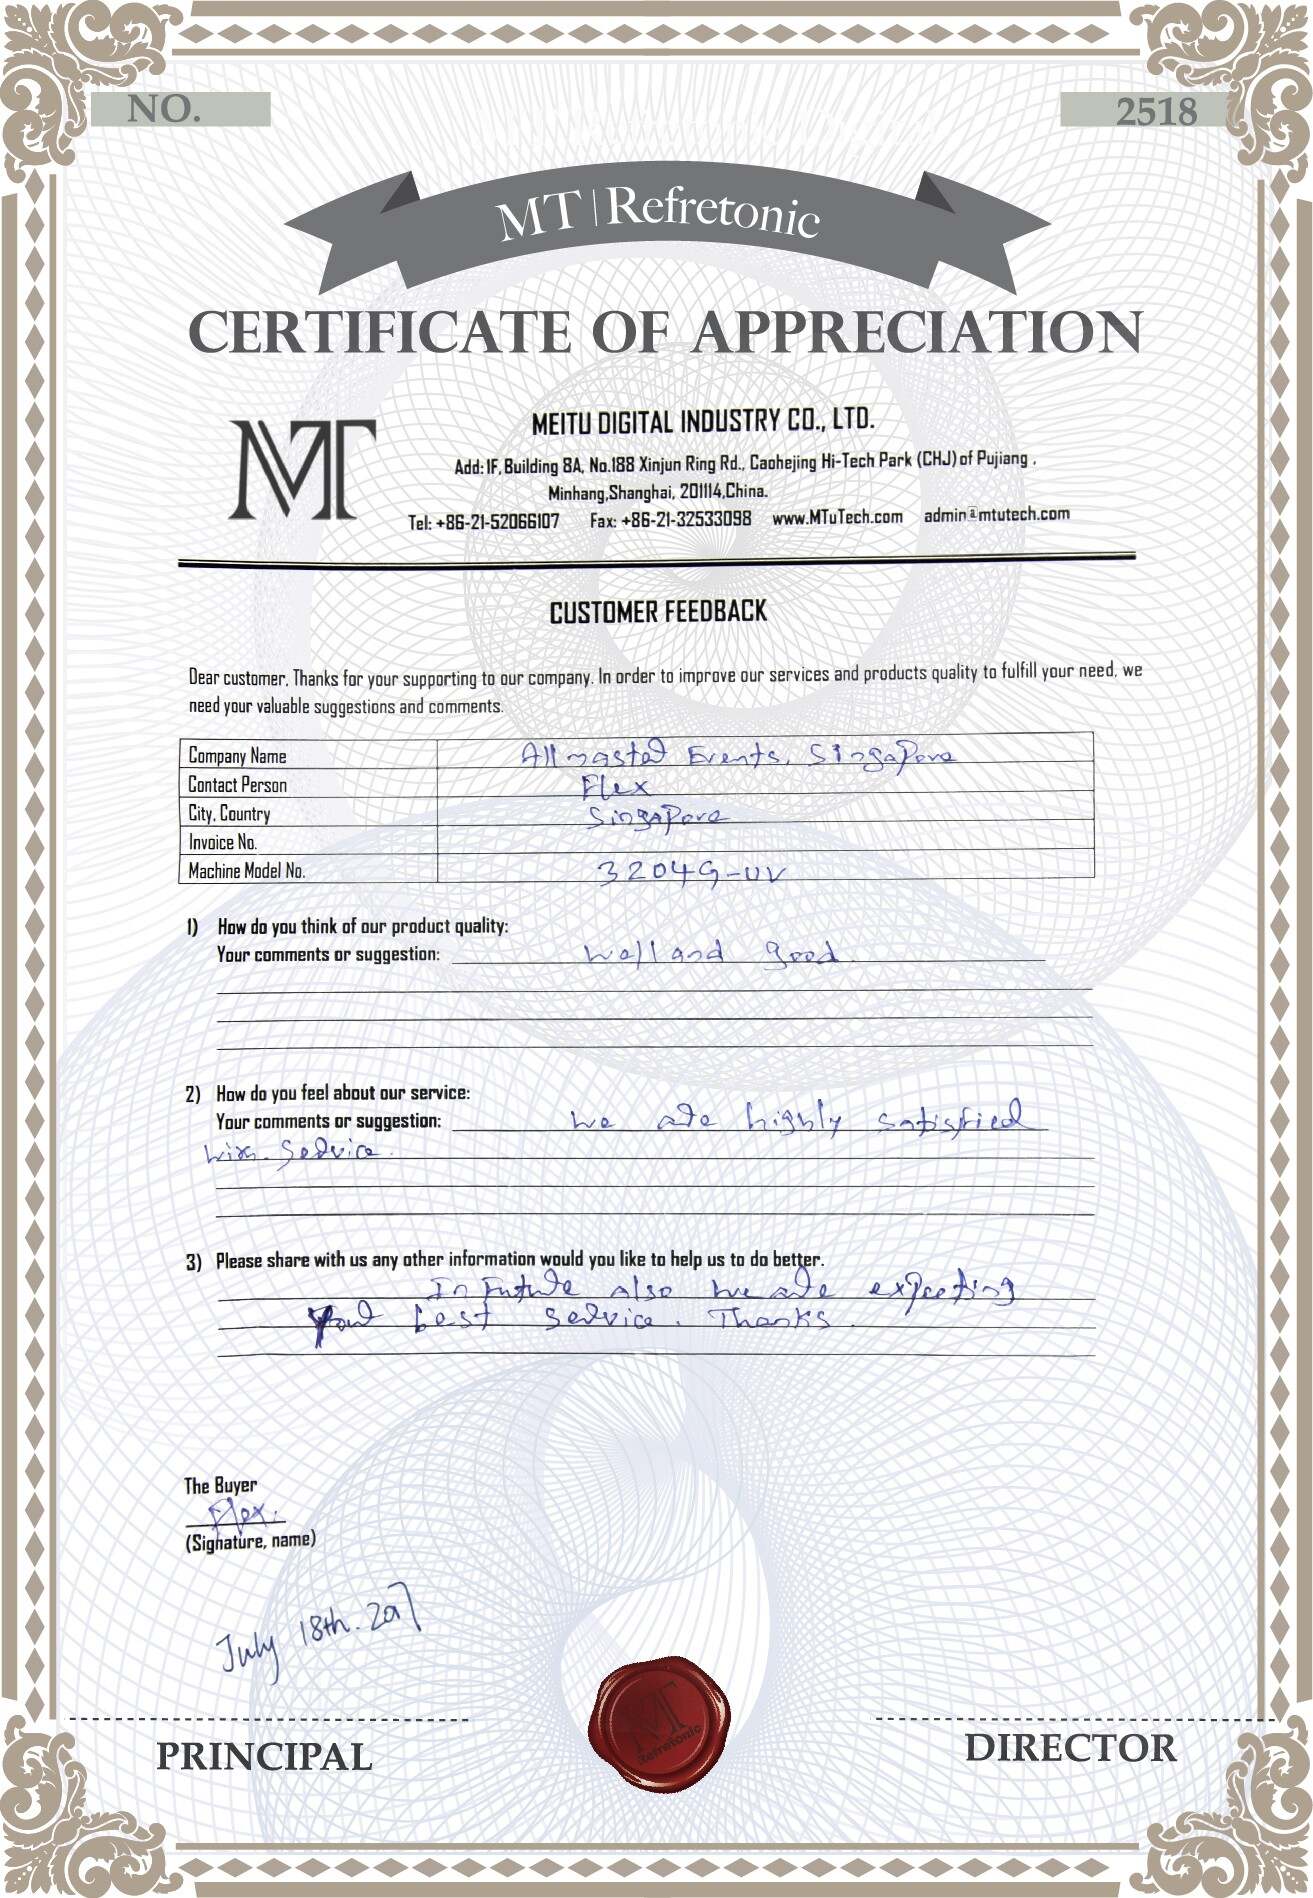 NO. 2518
MT | Refretonic
CERTIFICATE OF APPRECIATION
MT
MEITU DIGITAL INDUSTRY CO., LTD.
Add: 1F, Building 8A, No.188 Xinjun Ring Rd., Caohejing Hi-Tech Park (CHJ) of Pujiang ,
Minhang,Shanghai, 201114,China.
Tel: +86-21-52066107 Fax: +86-21-32533098 www.MTuTech.com admin@mtutech.com
CUSTOMER FEEDBACK
Dear customer, Thanks for your supporting to our company. In order to improve our services and products quality to fulfill your need, we
need your valuable suggestions and comments.
Company Name Events, Singapore
Contact Person Flex
City, Country Singapore
Invoice No.
Machine Model No. 3204G-UV
1) How do you think of our product quality:
Your comments or suggestion: Well and good.
2) How do you feel about our service:
Your comments or suggestion: We are highly satisfied
with service.
3) Please share with us any other information would you like to help us to do better.
In future also we are expecting
your best service. Thanks.
The Buyer
Flex.
(Signature, name)
July 18th. 2017
MT
Refretonic
PRINCIPAL DIRECTOR